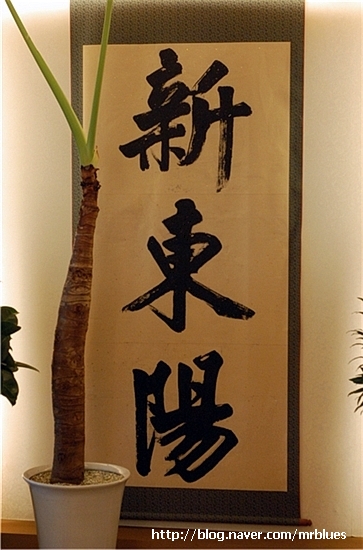 新東陽
http://blog.naver.com/mrblues